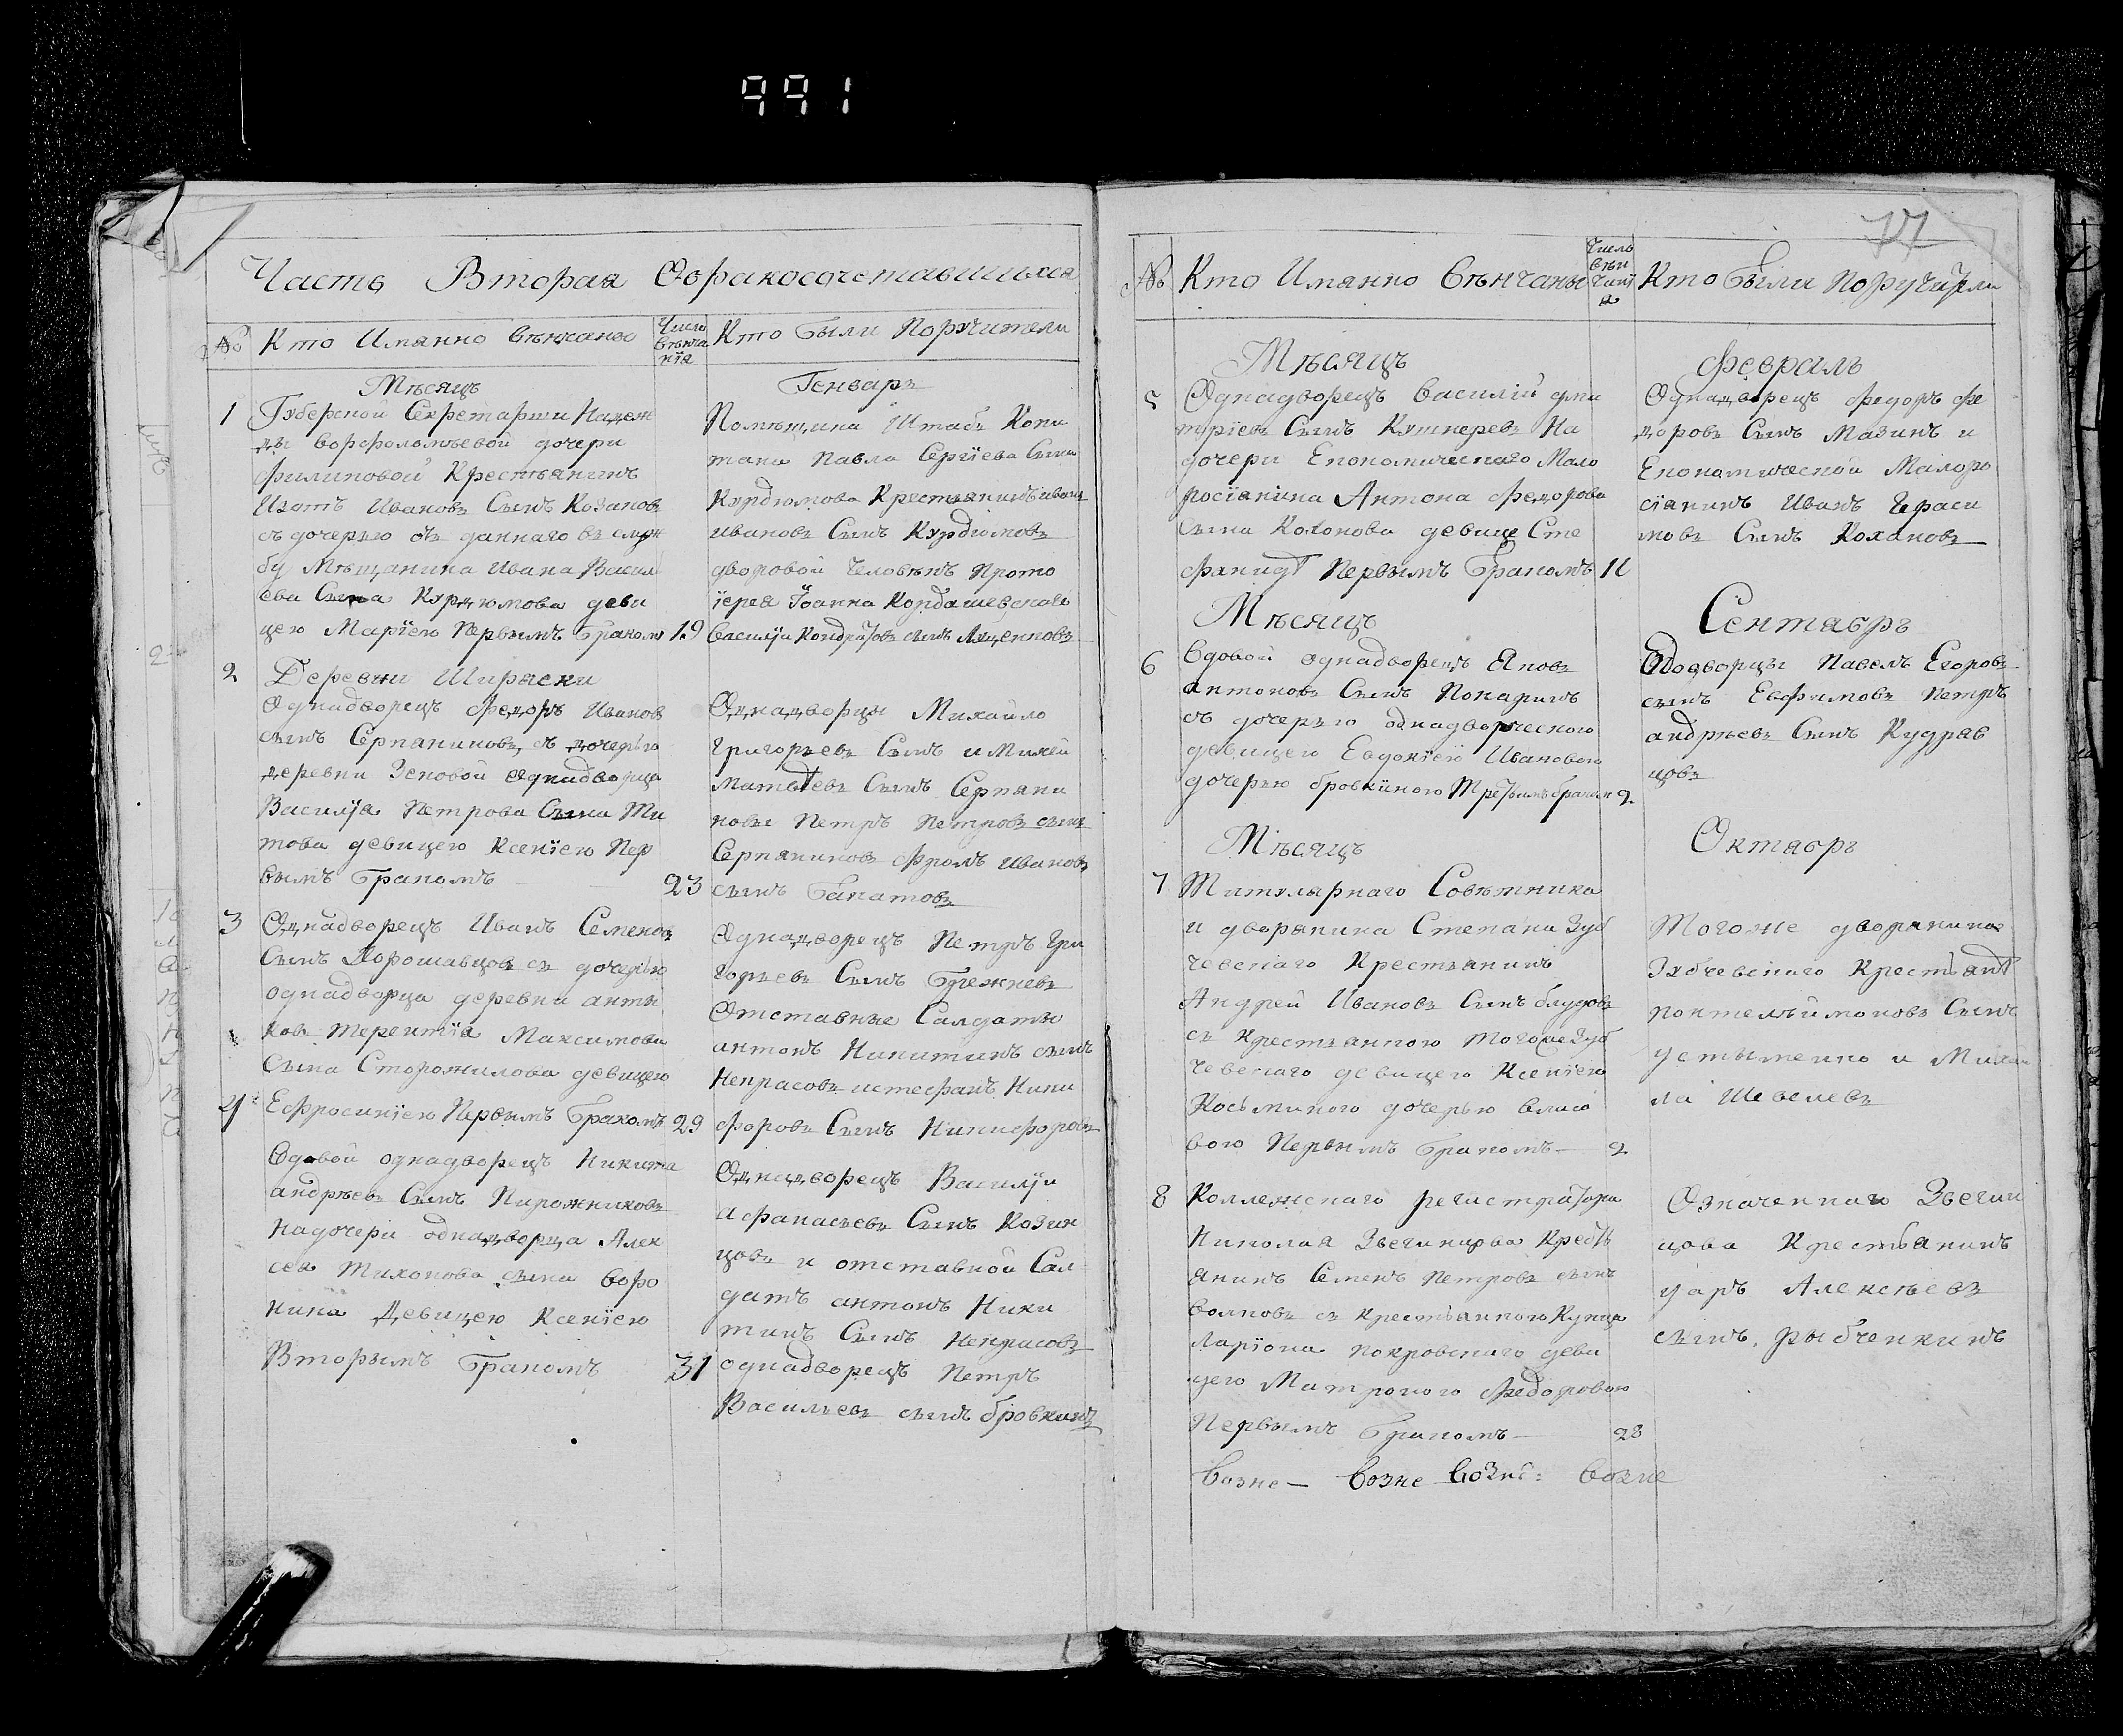 991
Часть Вторая Обракосочетавшихся
№ Кто Имянно Венчаны Число Венчанїя Кто Были Поручители
Мѣсяцъ Генварь
1 Губерской Секретарши Надеж
ды Ворфоломѣевой дочери
Филиповой Крестьянинъ
Изотъ Ивановъ Сынъ Козаковъ
съ дочерью отъ даннаго въ служ
бу Мѣщанина Ивана Васил
ева Сына Курдюмова деви
цею Марїею Первымъ Бракомъ 19
Помѣщика Штабъ Копи
тана Павла Сергїева Сына
Курдюмова Крестьянинъ Иванъ
Ивановъ Сынъ Курдюмовъ
дворовой Человѣкъ Прото
їерея Їоанна Кордашевскаго
Василїи Кондратовъ сынъ Луценковъ
2 Деревни Ширяски
Однадворецъ Федоръ Ивановъ
сынъ Серпаниновъ, съ дочерью
деревни Зеновой однадворца
Василїя Петрова Сына Ти
това девицею Ксенїею Пер
вымъ Бракомъ 23
Однадворцы Михайло
Григорьевъ Сынъ и Михей
Матвѣевъ Сынъ Серпани
новы Петръ Петровъ сынъ
Серпаниновъ Фролъ Ивановъ
сынъ Бакатовъ
3 Однадворецъ Иванъ Семеновъ
Сынъ Дорошавцовъ съ дочерью
однадворца деревни анты
ковъ Терентїя Максимова
Сына Сторожилова девицею
Ефросинїею Первымъ Бракомъ 29
Однадворецъ Петръ Гри
горьевъ Сынъ Брежневъ
Отставные Салдаты
антонъ Никитинъ сынъ
Некрасовъ истефанъ Ники
форовъ Сынъ Никифоровъ
4 Вдовой однадворецъ Никита
андрѣевъ Сынъ Пирожниковъ
надочери однадворца Алек
сея Тихонова сына Воро
нина Девицею Ксенїею
Вторымъ Бракомъ 31
Однадворецъ Василїи
Афанасьевъ Сынъ Козин
цовъ и отставной Сал
датъ антонъ Ники
тинъ Сынъ Некрасовъ
однадворецъ Петръ
Васильевъ сынъ бровкинъ
№ Кто Имянно Венчаны Числь вѣнчанїя Кто Были Поручители
Мѣсяцъ Февраль
5 Однадворецъ Василїй дми
трїевъ Сынъ Кушнеревъ На
дочери Економическаго Мало
росїянина Антона Федорова
Сына Кохонова девице Сте
фанидѣ Первымъ Бракомъ 11
Однадворецъ Федоръ Фе
доровъ Сынъ Мазинъ и
Економической Малоро
сїанинъ Иванъ Гераси
мовъ Сынъ Кохановъ
Мѣсяцъ Сентябрь
6 Вдовой однадворецъ Яковъ
антоновъ Сынъ Понаринъ
съ дочерью однадворческого
девицею Евдокїею Ивановою
дочерью бровкиною Третьимъ браком 2
Однодворцы Павелъ Егоровъ
сынъ Евфимовъ Петръ
андрѣевъ Сынъ Кудряв
цовъ
Мѣсяцъ Октябрь
7 Титулярнаго Совѣтника
и дворянина Степана Зуб
чевскаго Крестьянинъ
Андрей Ивановъ Сынъ блудовъ
съ крестьянкою Того же Зуб
чевскаго девицею Ксенїею
Косьминою дочерью власо
вою Первымъ Бракомъ 2
Тогоже дворянина
Зубчевскаго Крестьянѣ
понтелѣймоновъ Сынъ
устыменко и Михаи
ла Шевелевъ
8 Коллежскаго регистратора
Николая Звегинцова Крестѣ
янинъ Семенъ Петровъ сынъ
волковъ съ крестьянкою Купца
Ларїона покровскаго деви
цею Матроною Федоровою
Первымъ Бракомъ 28
Означеннаго Звегин
цова Крестьянинъ
уаръ Алексѣевъ
сынъ рыбченкинъ
возне возне возне возне